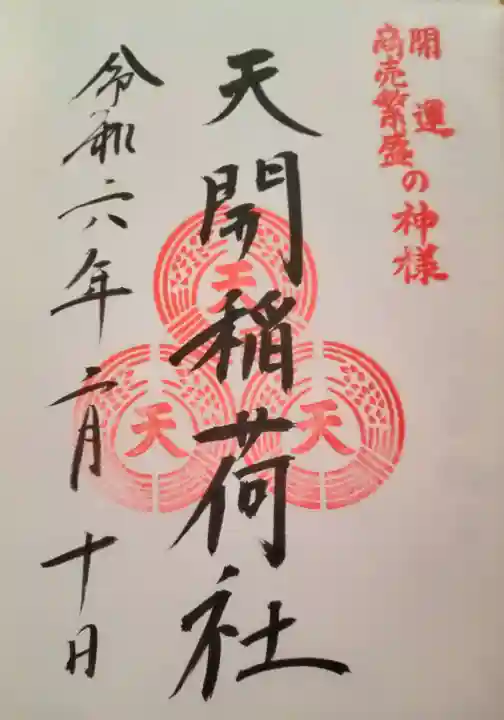 開運
商売繁盛
の神様
天開稲荷社
天
天
天
令和六年二月十日